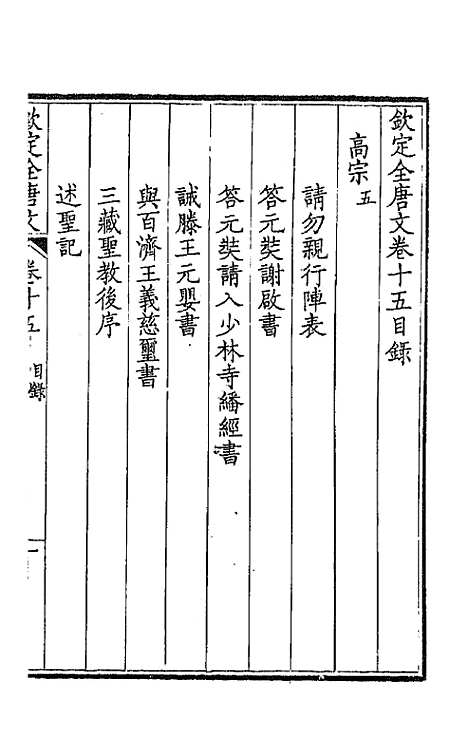 欽定全唐文卷十五目錄
高宗五
請勿親行陣表
答元奘謝啟書
答元奘請入少林寺繙經書
誡滕王元嬰書
與百濟王義慈璽書
三藏聖教後序
述聖記
欽定全唐文 卷十五 目錄 一